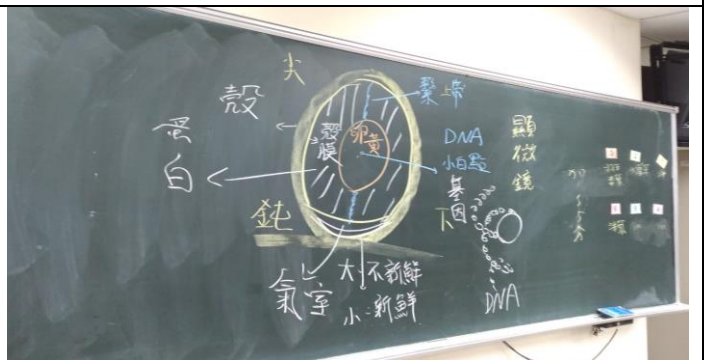 尖
繫帶
殼
殼膜
卵黃
蛋白
DNA
小白點
基因
顯微鏡
鈍
下
氣室
大:不新鮮
小:新鮮
DNA